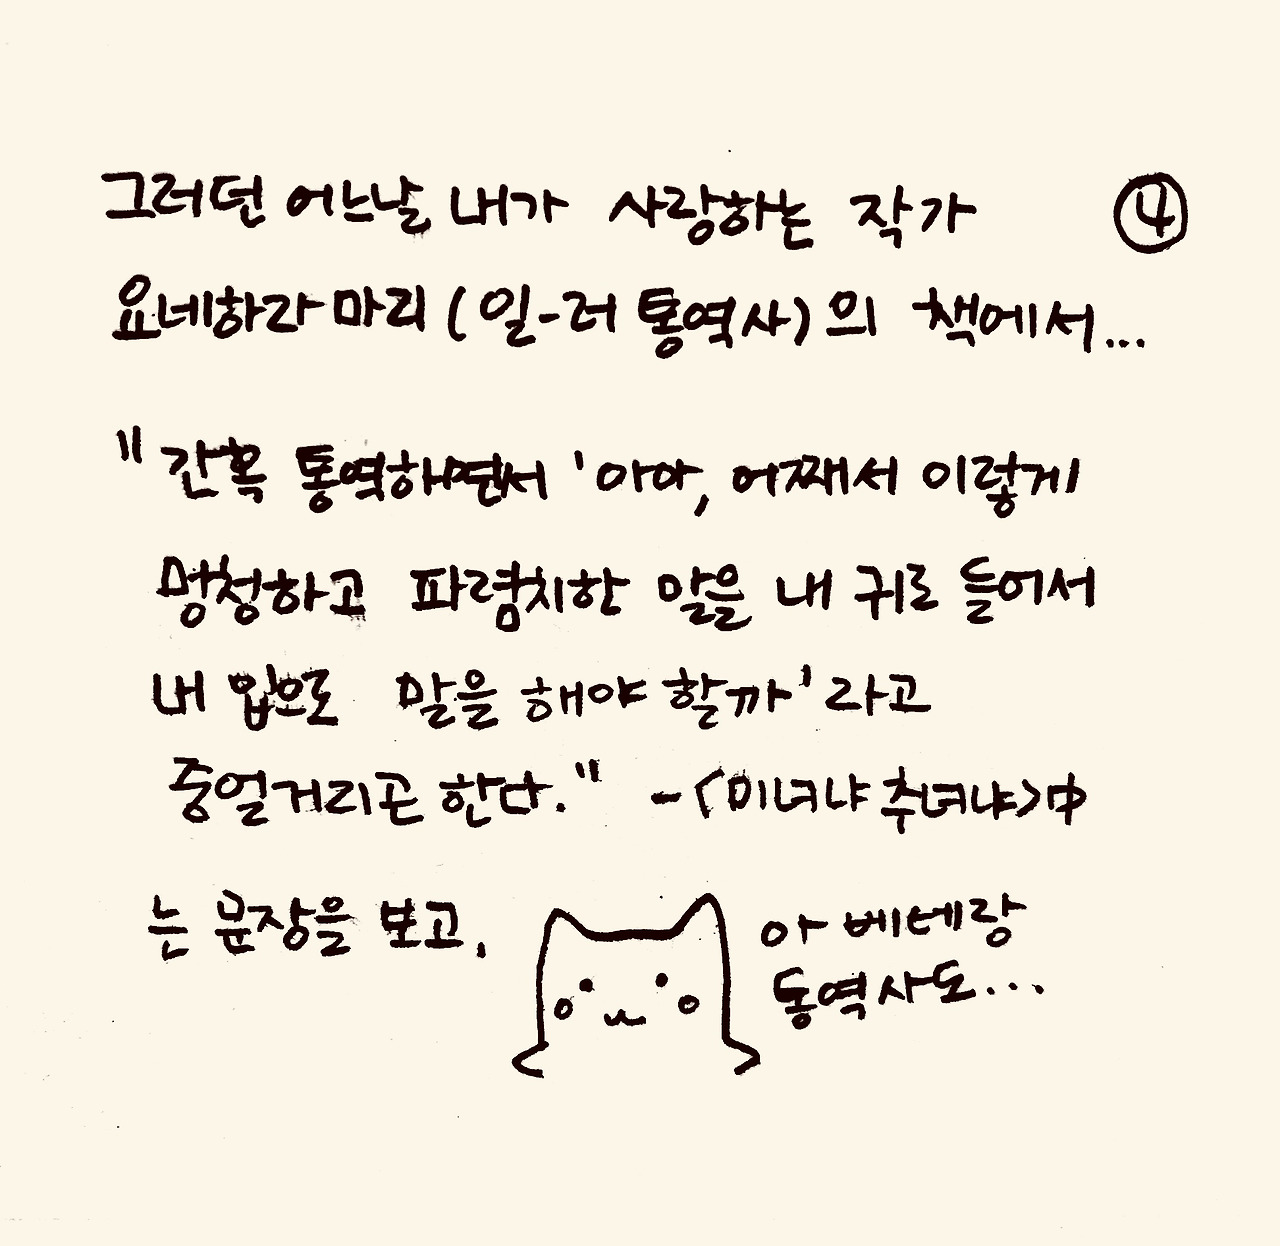 그러던 어느날 내가 사랑하는 작가
④
요네하라 마리 (일-러 통역사) 의 책에서...
"간혹 통역하면서 '아아, 어째서 이렇게
멍청하고 파렴치한 말을 내 귀로 들어서
내 입으로 말을 해야 할까' 라고
중얼거리곤 한다." - <미녀냐 추녀냐> 中
는 문장을 보고,
아 베테랑
통역사도...